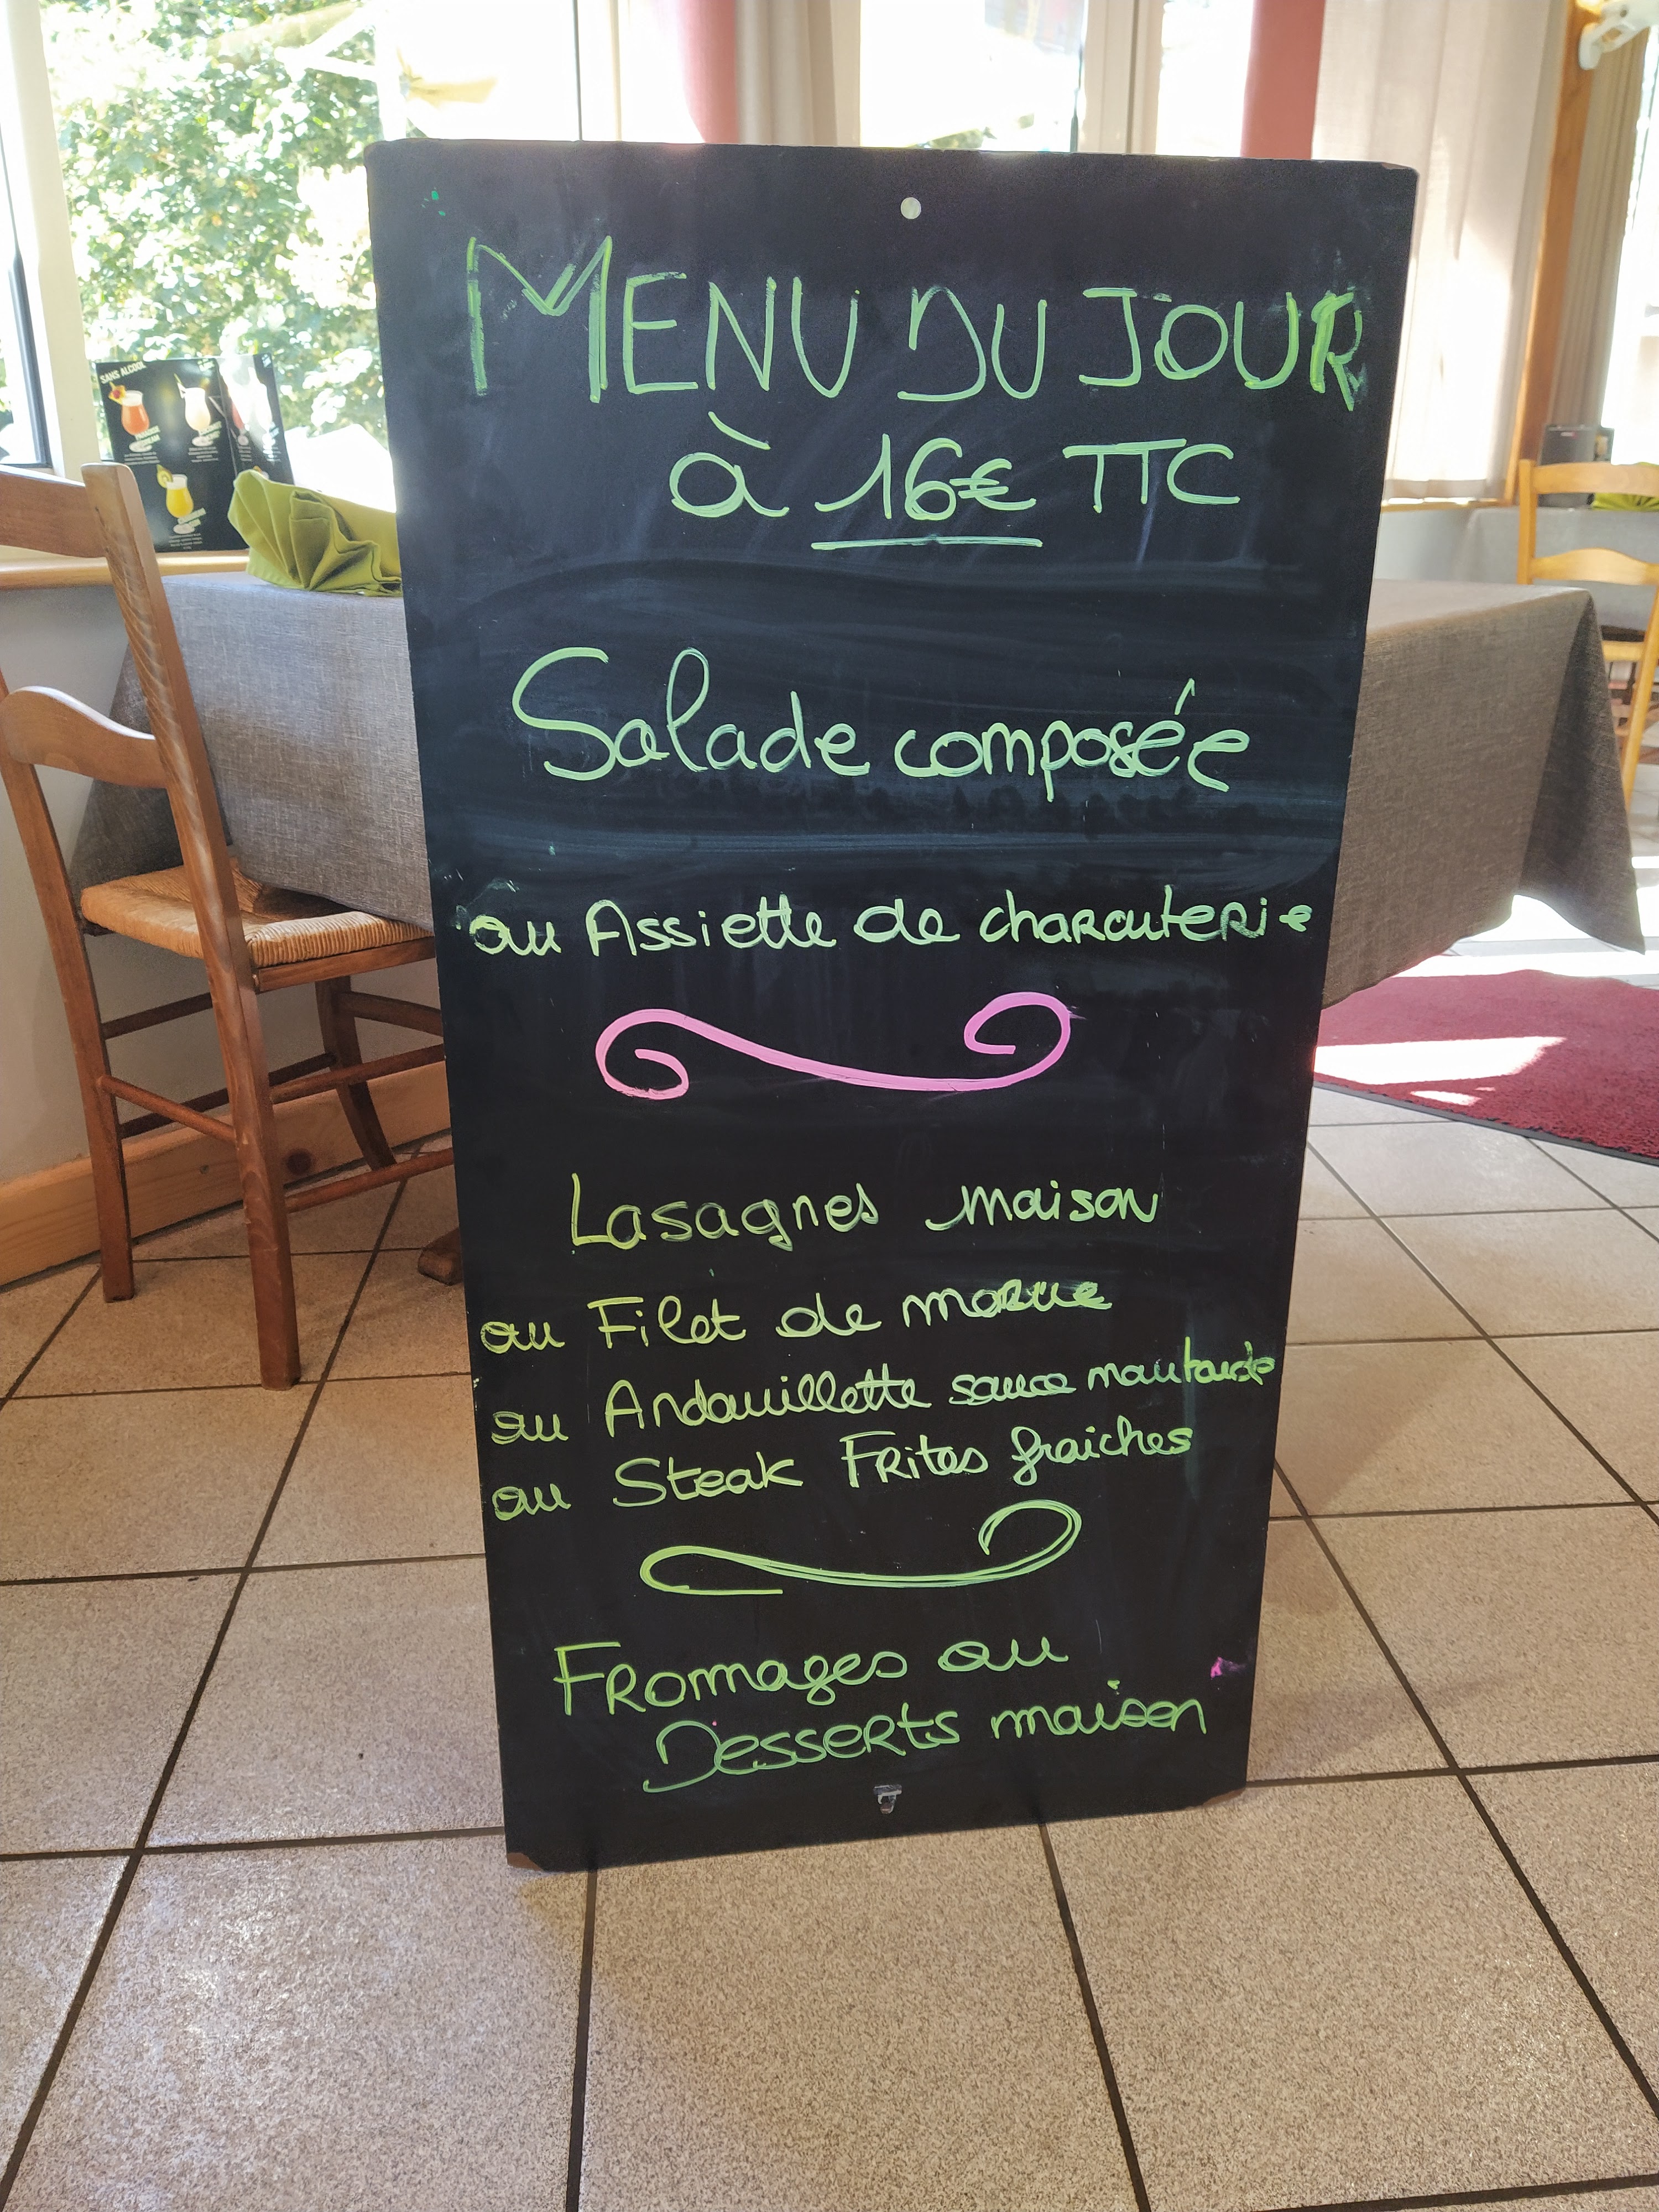 SANS ALCOOL
MENU DU JOUR
à 16€ TTC
Salade composée
ou Assiette de charcuterie
Lasagnes maison
ou Filet de morue
ou Andouillette sauce moutarde
ou Steak Frites fraiches
Fromages ou
Desserts maison